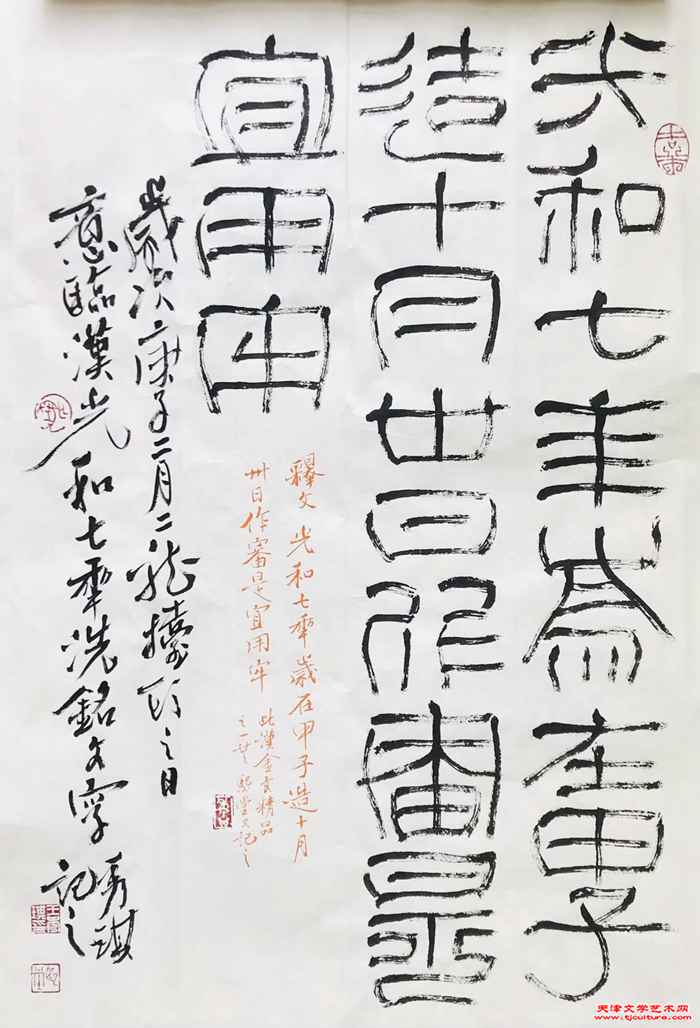 光和七年歲在甲子
造十月卅日作審是
宜用牢
釋文 光和七秊歲在甲子造十月
卅日作審是宜用牢
此漢金文精品
之一 熙堂又記之
歲次庚子二月二龍擡頭之日
意臨漢光和七秊洗銘文字
秀琪
記之
天津文学艺术网
www.tjculture.com